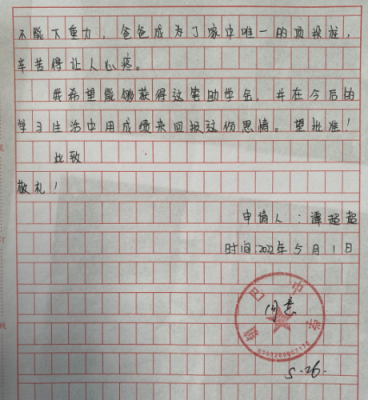 不能下重力，爸爸成为了家中唯一的顶梁柱，
辛苦得让人心疼。
我希望能够获得这笔助学金，并在今后的
学习生活中用成绩来回报这份恩情。望批准！
此致
敬礼！
申请人：谭超超
时间：2022年5月1日
同意
5.26.